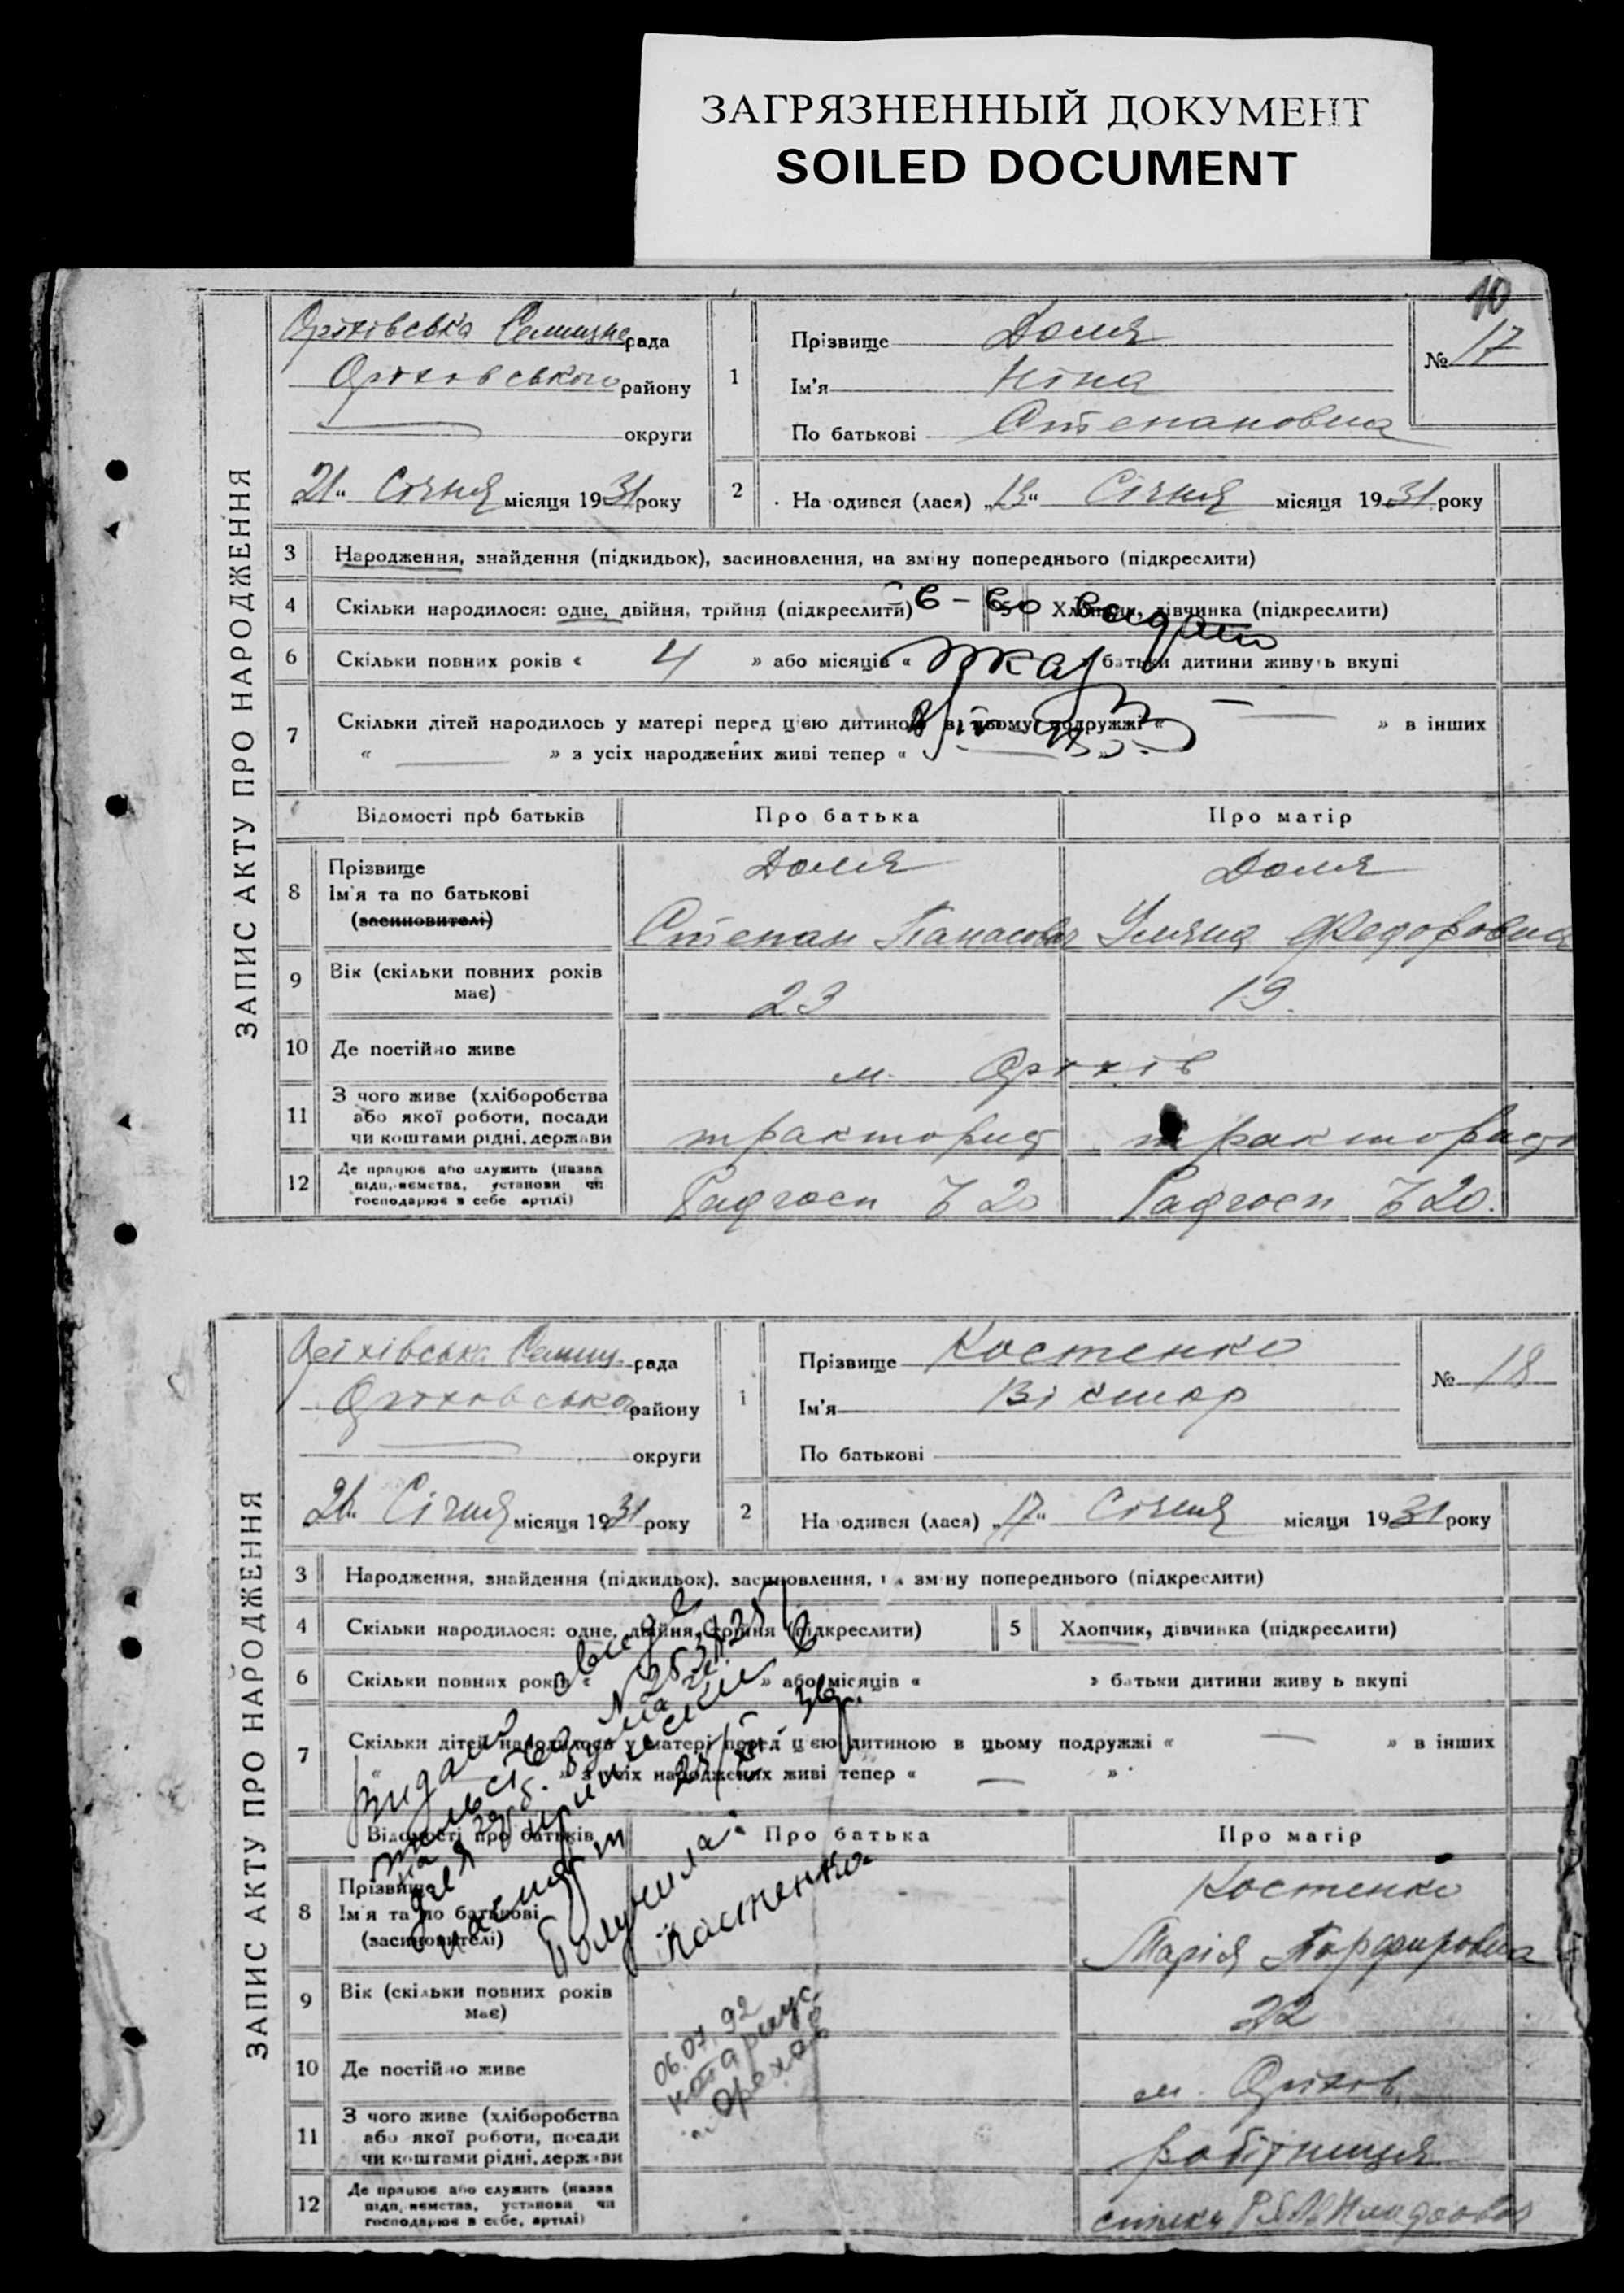 ЗАГРЯЗНЕННЫЙ ДОКУМЕНТ
SOILED DOCUMENT
10
ЗАПИС АКТУ ПРО НАРОДЖЕННЯ
Оріхівська Селищна рада
Оріховського району
округи
„21“ Січня місяця 1931 року
1
Прізвище Доля
Ім'я Ніна
По батькові Степановна
№ 17
2
На одився (лася) „13“ Січня місяця 1931 року
3 Народження, знайдення (підкидьок), засиновлення, на зміну попереднього (підкреслити)
4 Скільки народилося: одне, двійня, трійня (підкреслити) 5 Хлопчик, дівчинка (підкреслити)
с-во видано
6 Скільки повних років « 4 » або місяців « батьки дитини живуть вкупі
7 Скільки дітей народилось у матері перед цією дитиною в цьому подружжі « — » в інших
« — » з усіх народжених живі тепер « — »
Відомості про батьків Про батька Про матір
8 Прізвище Доля Доля
Ім'я та по батькові
(засиновителі) Степан Панасович Уляна Федоровна
9 Вік (скільки повних років має) 23 19.
10 Де постійно живе м. Оріхів
11 З чого живе (хліборобства
або якої роботи, посади
чи коштами рідні, держави тракторист трактористка
12 Де працює або служить (назва
підприємства, установи чи
господарює в себе артілі) Радгосп № 20 Радгосп № 20.
ЗАПИС АКТУ ПРО НАРОДЖЕННЯ
Оріхівська Селищ. рада
Оріховського району
округи
21 Січня місяця 1931 року
1
Прізвище Костенко
Ім'я Віктор
По батькові
№ 18
2
На одився (лася) „17“ Січня місяця 1931 року
3 Народження, знайдення (підкидьок), засиновлення, на зміну попереднього (підкреслити)
4 Скільки народилося: одне, двійня, трійня (підкреслити) 5 Хлопчик, дівчинка (підкреслити)
6 Скільки повних років « » або місяців « » батьки дитини живуть вкупі
7 Скільки дітей народилось у матері перед цією дитиною в цьому подружжі « — » в інших
« » з усіх народжених живі тепер « — »
Видано
Получила:
Костенко
Відомості про батьків Про батька Про матір
8 Прізвище Костенко
Ім'я та по батькові
(засиновителі) Марія Порфировна
9 Вік (скільки повних років має) 22
06.07.92
нотариус
Орехов
10 Де постійно живе м. Оріхов
11 З чого живе (хліборобства
або якої роботи, посади
чи коштами рідні, держави робітниця
12 Де працює або служить (назва
підприємства, установи чи
господарює в себе, артілі) спілка